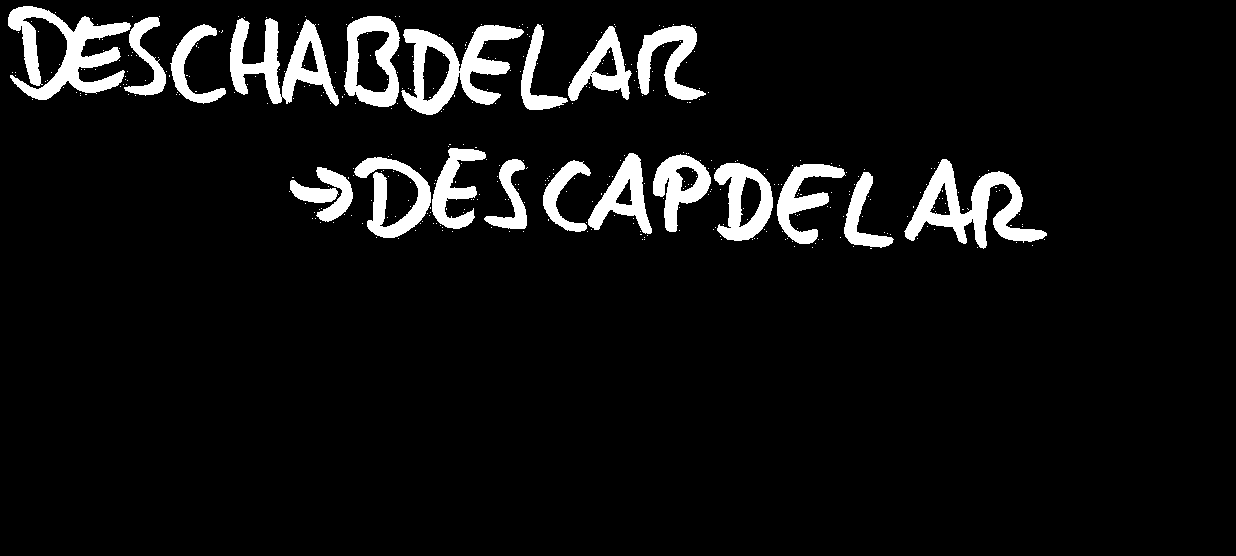 DESCHABDELAR
→DESCAPDELAR